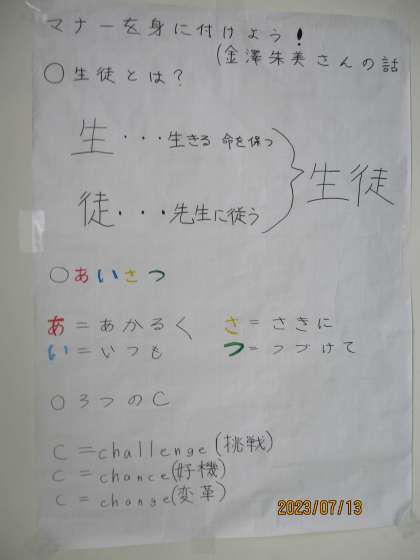 マナーを身に付けよう!
(金澤朱美さんの話
○生徒とは?
生・・・生きる 命を保つ
徒・・・先生に従う
生徒
○あいさつ
あ=あかるく さ=さきに
い=いつも つ=つづけて
○3つのC
C=challenge(挑戦)
C=chance(好機)
C=change(変革)
2023/07/13